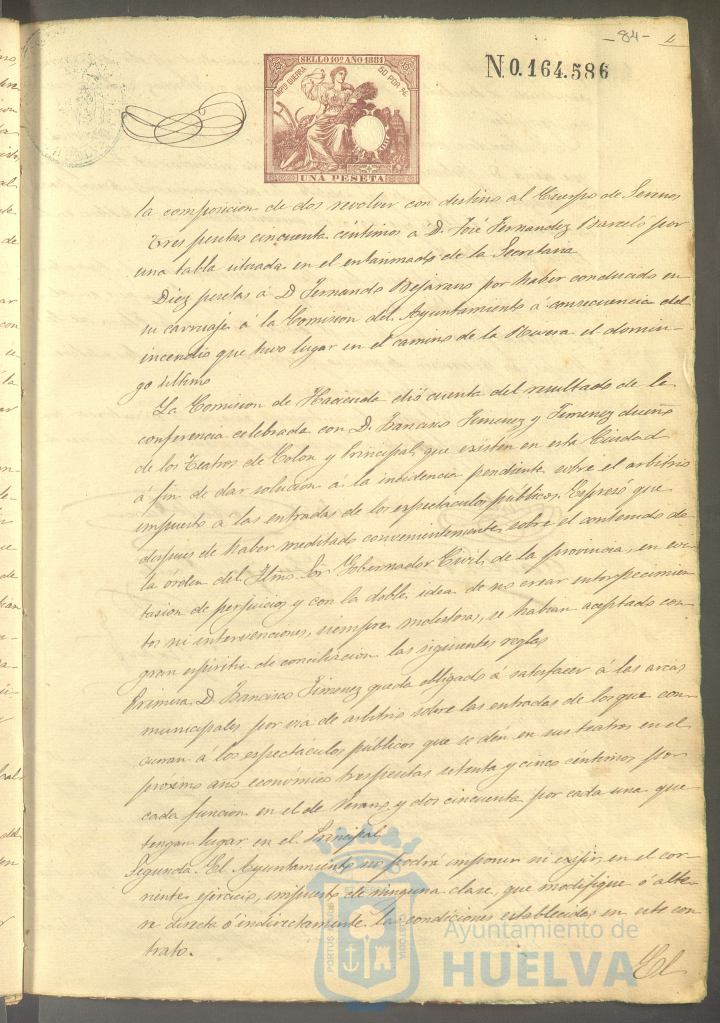 -84-
SELLO 10º AÑO 1881
IMPTO GUERRA 50 POR %
UNA PESETA
N 0.164.586
la composicion de dos revolver con destino al Cuerpo de Serenos
Tres pesetas cincuenta centimos á D. José Fernandez Barceló por
una tabla situada en el entarimado de la Secretaria
Diez pesetas á D Fernando Bejarano por haber conducido en
su carruaje á la Comision del Ayuntamiento á consecuencia del
incendio que tuvo lugar en el camino de la Rivera el domin-
go último
La Comision de Hacienda dió cuenta del resultado de la
conferencia celebrada con D. Francisco Jimenez y Jimenez dueño
de los Teatros de Colon y Principal, que existen en esta Ciudad
á fin de dar solucion á la incidencia pendiente sobre el arbitrio
impuesto á las entradas de los espectáculos públicos. Expresó que
despues de haber meditado convenientemente sobre el contenido de
la órden del Ilmo. Sr Gobernador Civil, de la provincia, en evi
tasion de perjuicios y con la doble idea de no crear entorpecimien
tos ni intervenciones, siempre molestosas, se habian aceptado con
gran espiritu de conciliacion las siguientes reglas
Primera. D. Francisco Jimenez queda obligado á satisfacer á las arcas
municipales por via de arbitrio sobre las entradas de los que con-
curran á los espectáculos públicos que se dén en sus teatros en el
próximo año económico tres pesetas setenta y cinco céntimos por
cada funcion en el de Verano, y dos cincuenta por cada una que
tengan lugar en el Principal
Segunda. El Ayuntamiento no podrá imponer ni exijir, en el cor-
riente ejercicio, impuesto de ninguna clase, que modifique ó alte
re directa ó indirectamente las condiciones establecidas en este con
trato.
El
Ayuntamiento de
HUELVA